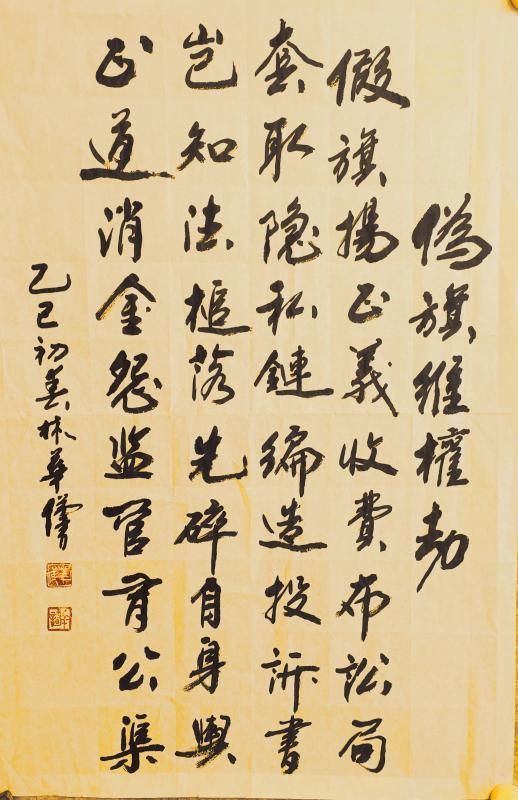 偽旗維權劫
假旗揚正義收費布訟局
套取隐私鏈編造投訴書
岂知法槌落先碎自身輿
正道消金怨监管有公渠
乙巳初春林華